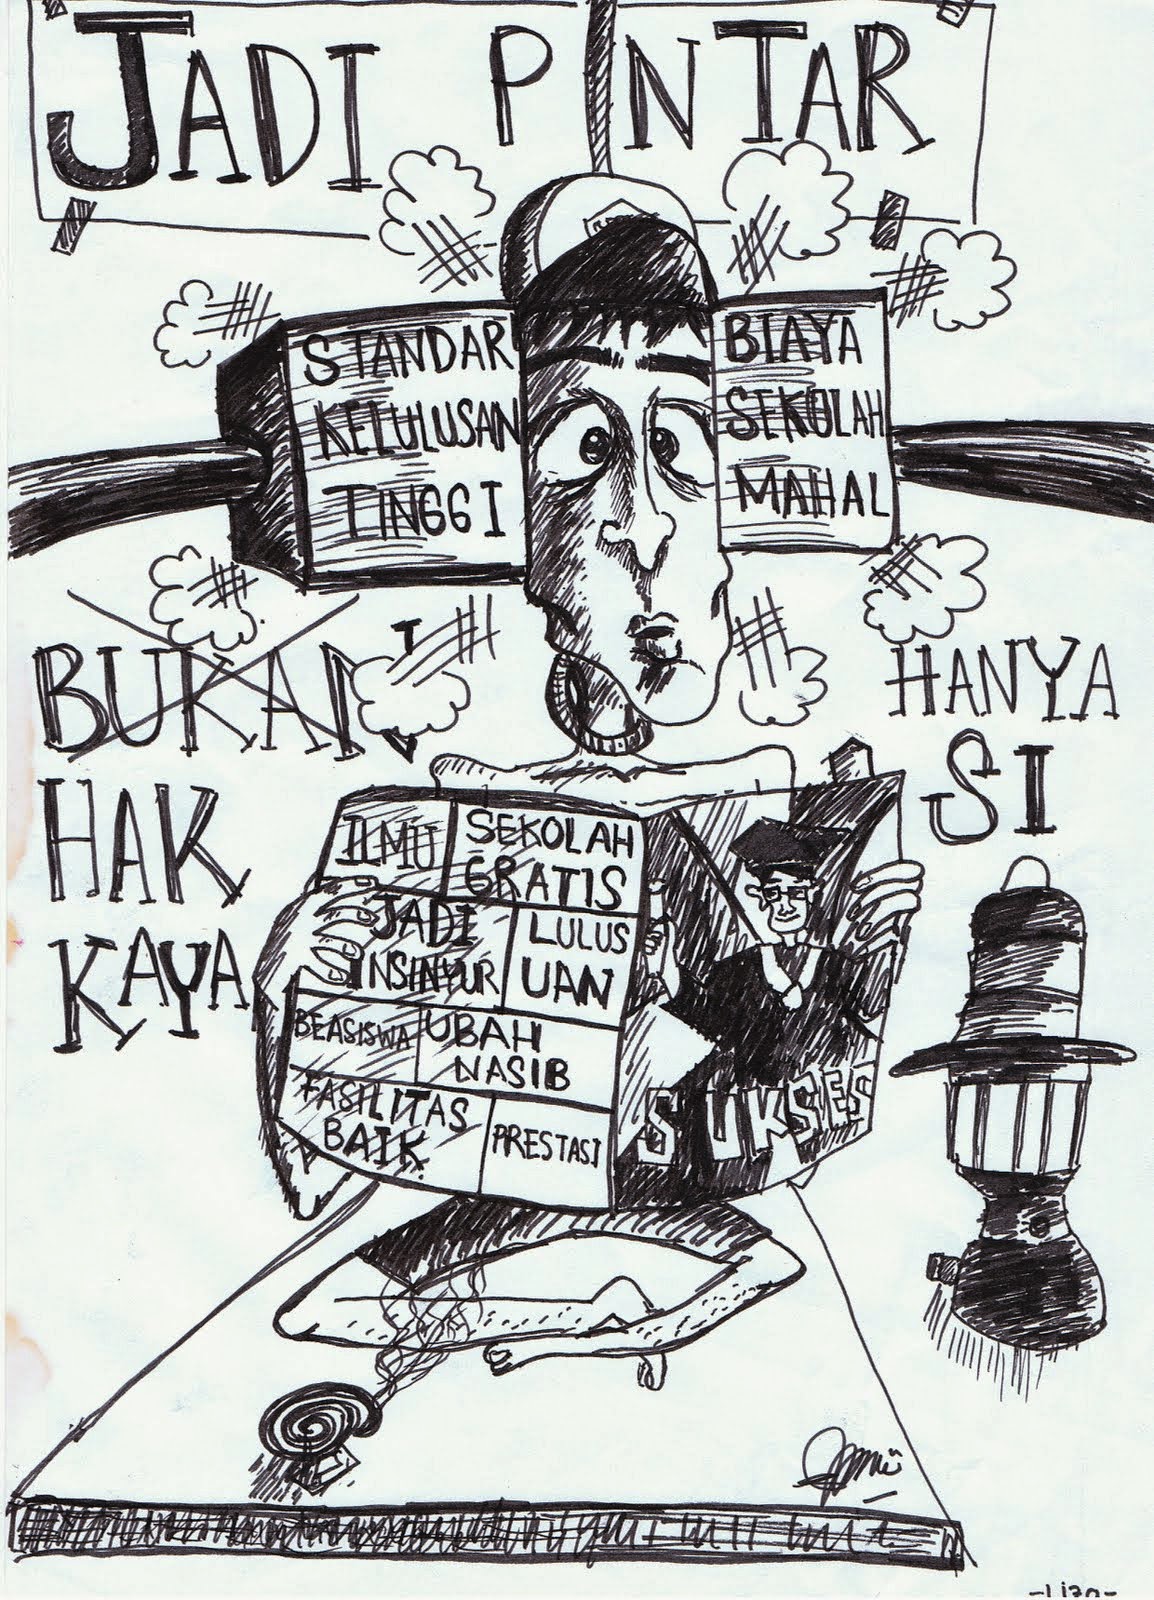 JADI PINTAR
STANDAR
KELULUSAN
TINGGI
BIAYA
SEKOLAH
MAHAL
BUKAN
HAK
KAYA
HANYA
SI
ILMU
SEKOLAH
GRATIS
JADI
INSINYUR
LULUS
UAN
BEASISWA
UBAH
NASIB
FASILITAS
BAIK
PRESTASI
SUKSES